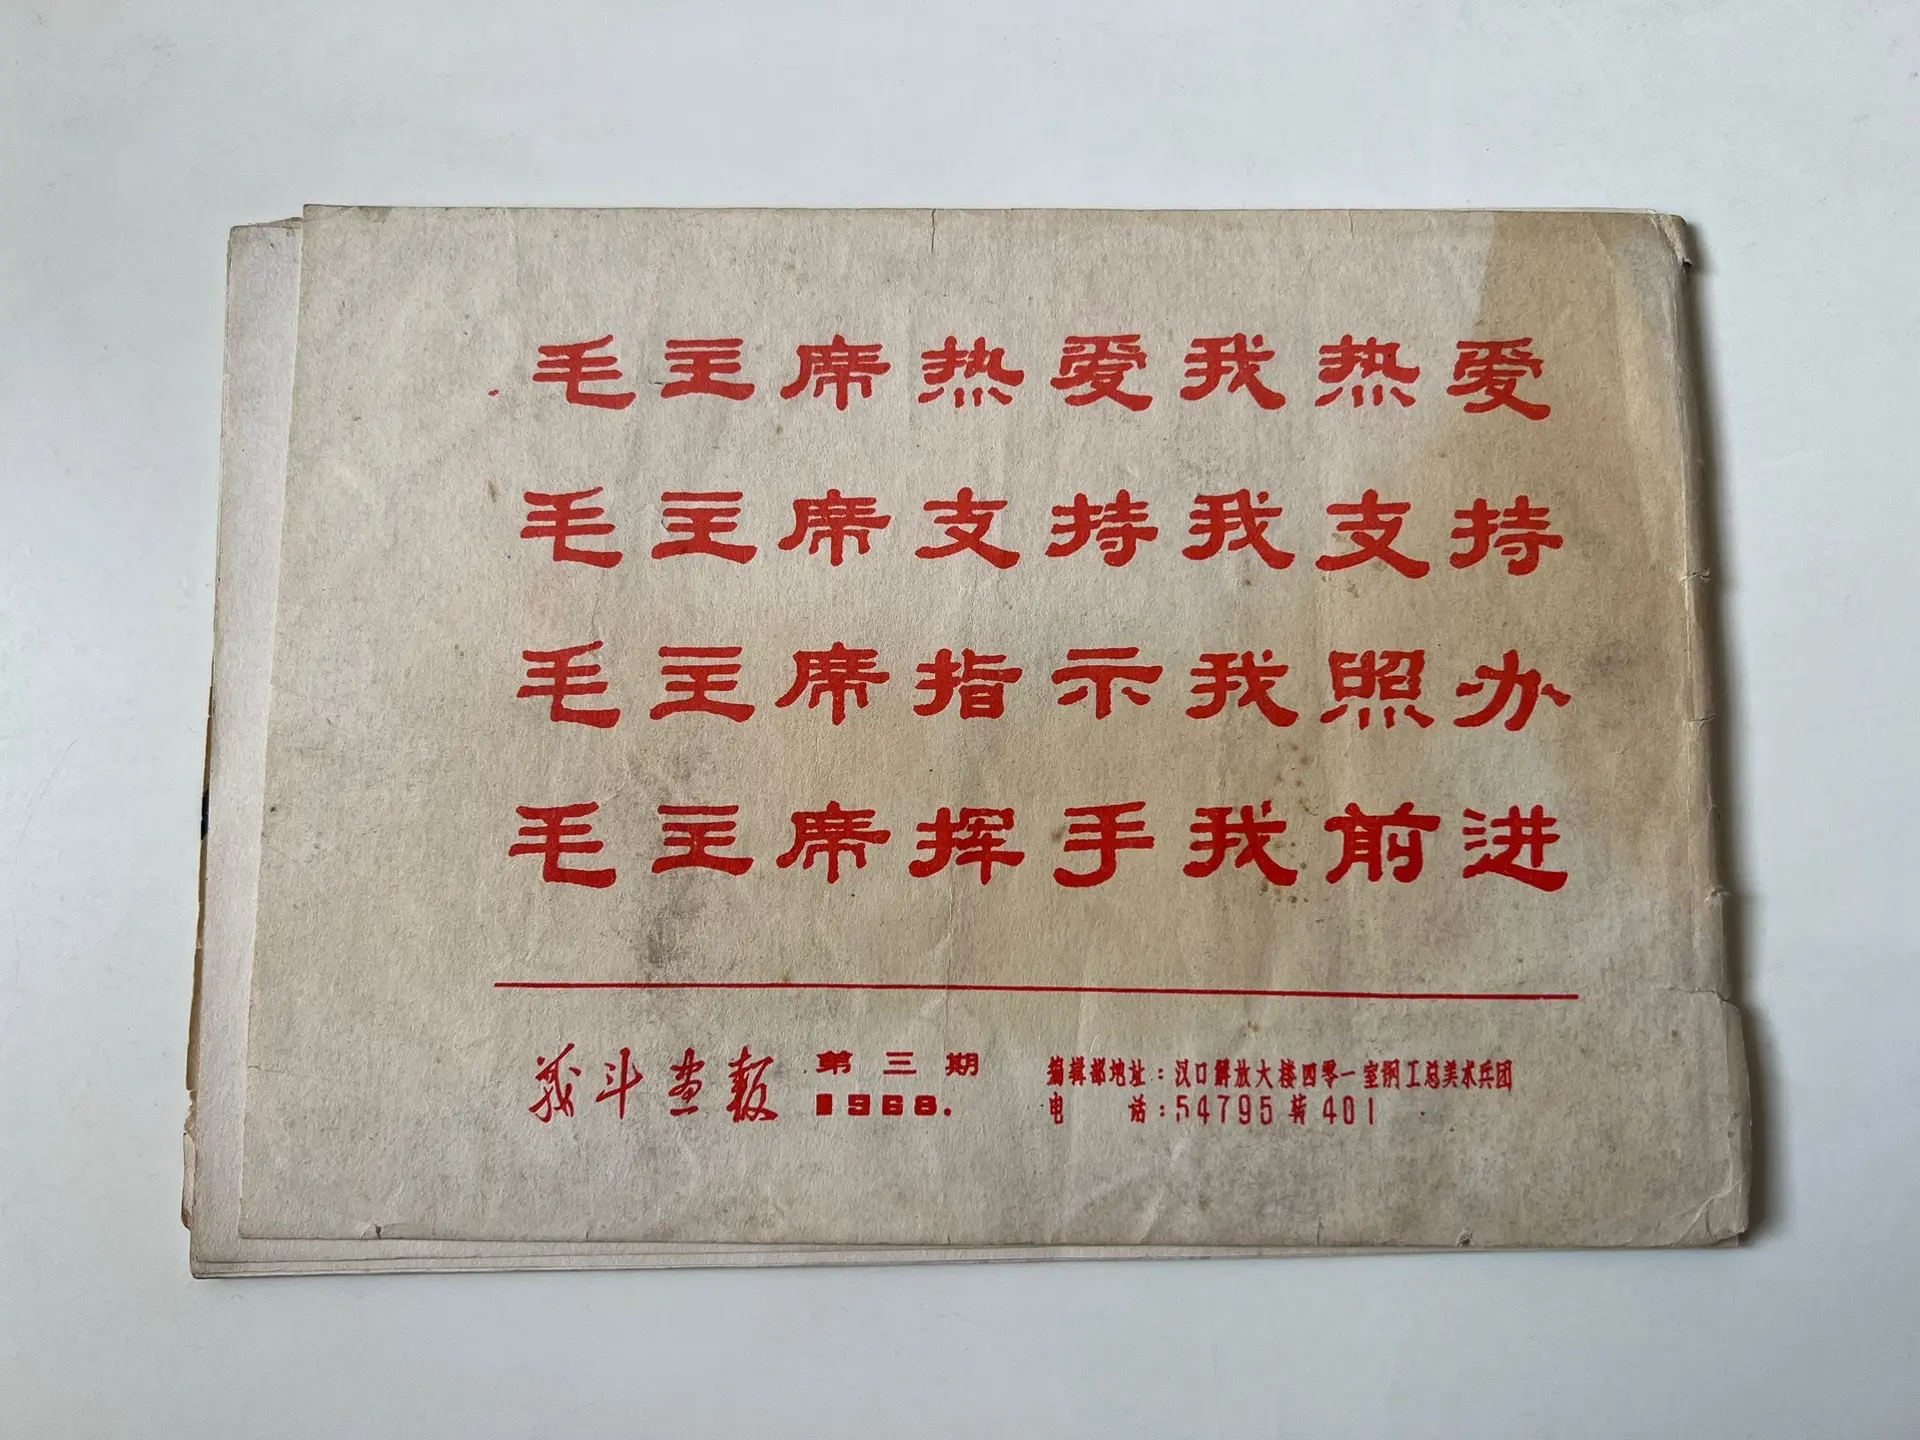 毛主席热爱我热爱
毛主席支持我支持
毛主席指示我照办
毛主席挥手我前进
战斗画报 第三期
1968.
编辑部地址：汉口解放大楼四零一室钢工总美术兵团
电 话：54795 转 401